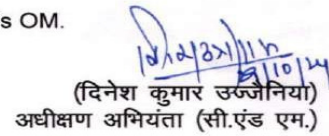 s OM.
(दिनेश कुमार उज्जैनिया)
अधीक्षण अभियंता (सी.एंड एम.)